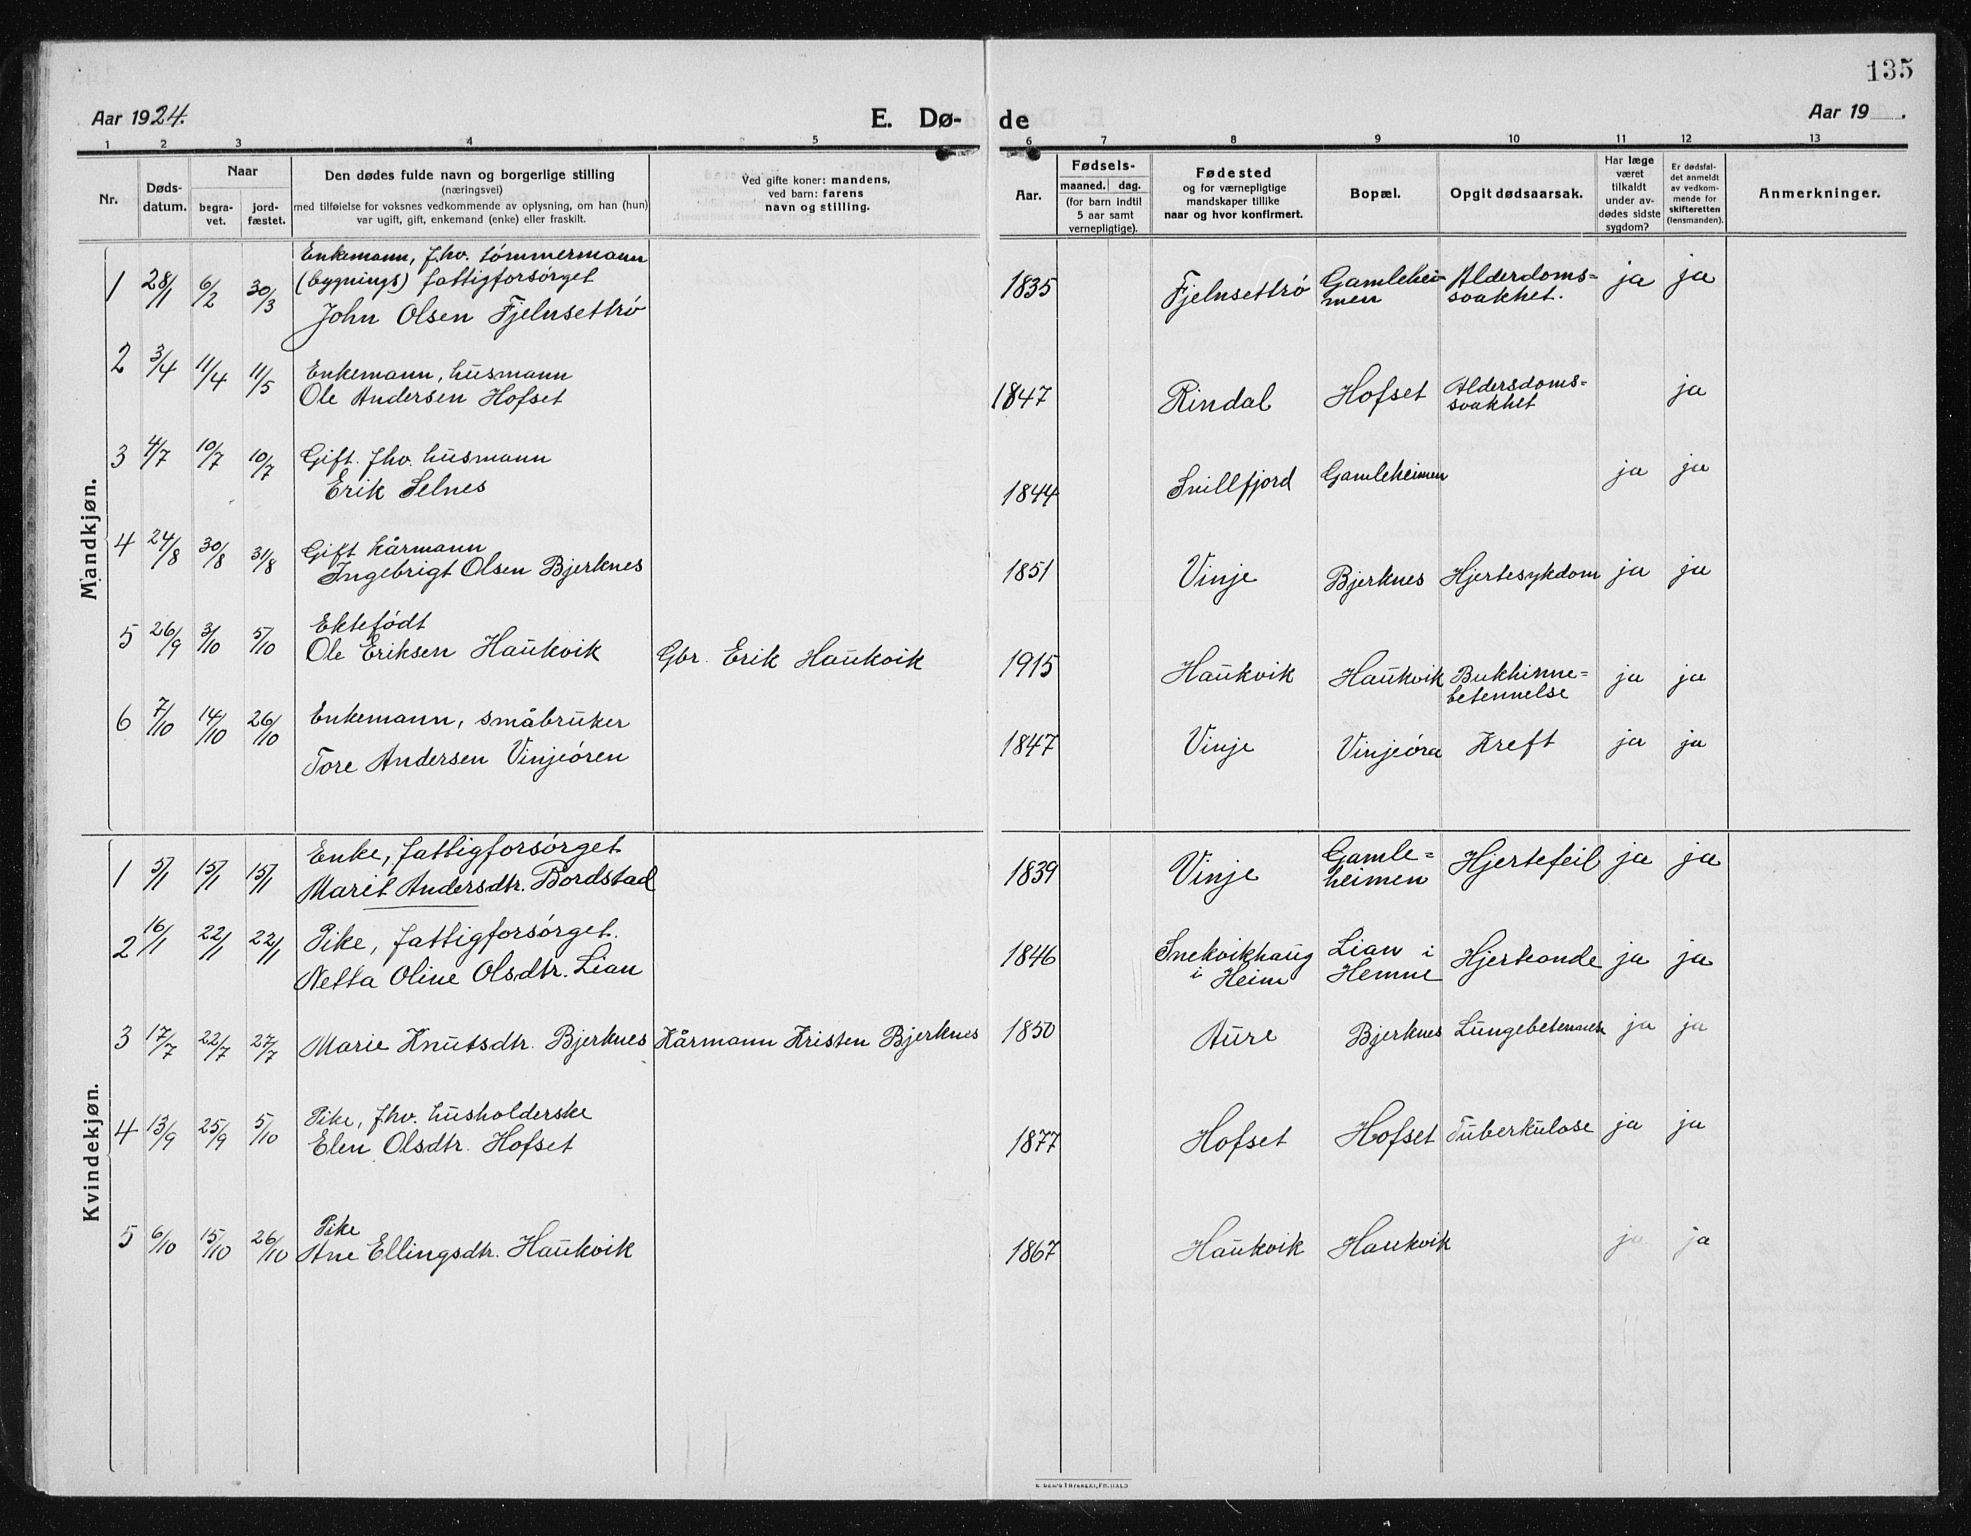 135
Aar 1924.
E. Dø-
de
Aar 19 .
1 2 3 4 5 6 7 8 9 10 11 12 13
Nr.
Døds-
datum.
Naar
begra-
vet.
jord-
fæstet.
Den dødes fulde navn og borgerlige stilling
(næringsvei)
med tilføielse for voksnes vedkommende av oplysning, om han (hun)
var ugift, gift, enkemand (enke) eller fraskilt.
Ved gifte koner: mandens,
ved barn: farens
navn og stilling.
Aar.
Fødsels-
maaned. dag.
(for barn indtil
5 aar samt
vernepligtige).
Fødested
og for værnepligtige
mandskaper tillike
naar og hvor konfirmert.
Bopæl.
Opgit dødsaarsak.
Har læge
været
tilkaldt
under av-
dødes sidste
sygdom?
Er dødsfal-
det anmeldt
av vedkom-
mende for
skifteretten
(lensmanden).
Anmerkninger.
Mandkjøn.
Enkemann, fhv. tømmermann
1 28/1 6/2 30/3 (bygnings) fattigforsørget 1835 Fjelnsettrø Gamlehei- Alderdoms= ja ja
John Olsen Fjelnsettrø men svakhet.
2 3/4 11/4 11/5 Enkemann, husmann
Ole Andersen Hofset 1847 Rindal Hofset Aldersdoms= ja
svakhet
3 4/7 10/7 10/7 Gift. fhv. husmann
Erik Selnes 1844 Snillfjord Gamleheimen ja ja
4 24/8 30/8 31/8 Gift kårmann
Ingebrigt Olsen Bjerknes 1851 Vinje Bjerknes Hjertesykdom ja ja
5 26/9 3/10 5/10 Ektefødt
Ole Eriksen Haukvik Gbr. Erik Haukvik 1915 Haukvik Haukvik Bukhinne= ja ja
betennelse
6 7/10 14/10 26/10 Enkemann, småbruker
Tore Andersen Vinjeøren 1847 Vinje Vinjeøra Kreft ja ja
Kvindekjøn.
1 5/1 15/1 15/1 Enke, fattigforsørget
Marit Andersdtr. Bordstad 1839 Vinje Gamle= Hjertefeil ja ja
heimen
2 16/1 22/1 22/1 Pike, fattigforsørget.
Netta Oline Olsdtr. Lian 1846 Snekvikhaug Lian i Hjerkonde ja ja
i Heim Hemne
3 17/7 22/7 27/7 Marie Knutsdtr. Bjerknes Kårmann Kristen Bjerknes 1850 Aure Bjerknes ja ja
4 13/9 25/9 5/10 Pike, fhv. husholderske
Elen Olsdtr. Hofset 1877 Hofset Hofset Tuberkulose ja ja
5 6/10 15/10 26/10 Pike
Ane Ellingsdtr. Haukvik 1867 Haukvik Haukvik ja ja